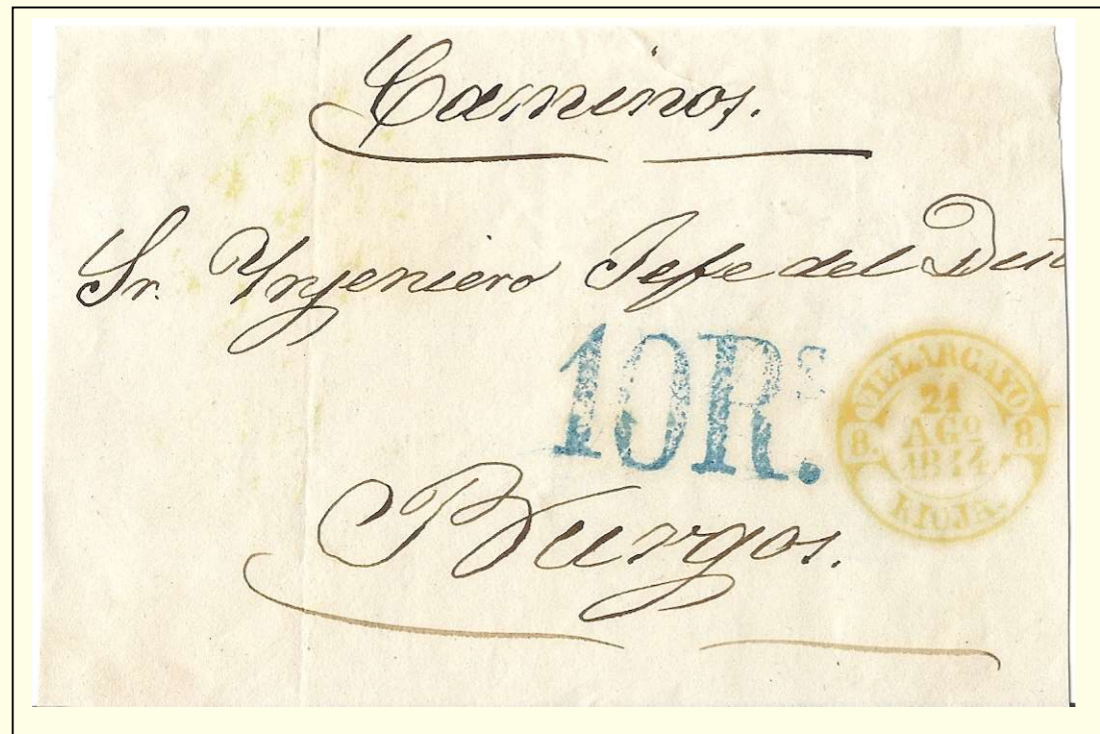 Caminos.
Sr. Ynjeniero Jefe del
10Rs.
VILLARCAYO
21
AGO
1844
8. 8.
RIOJA.
Burgos.